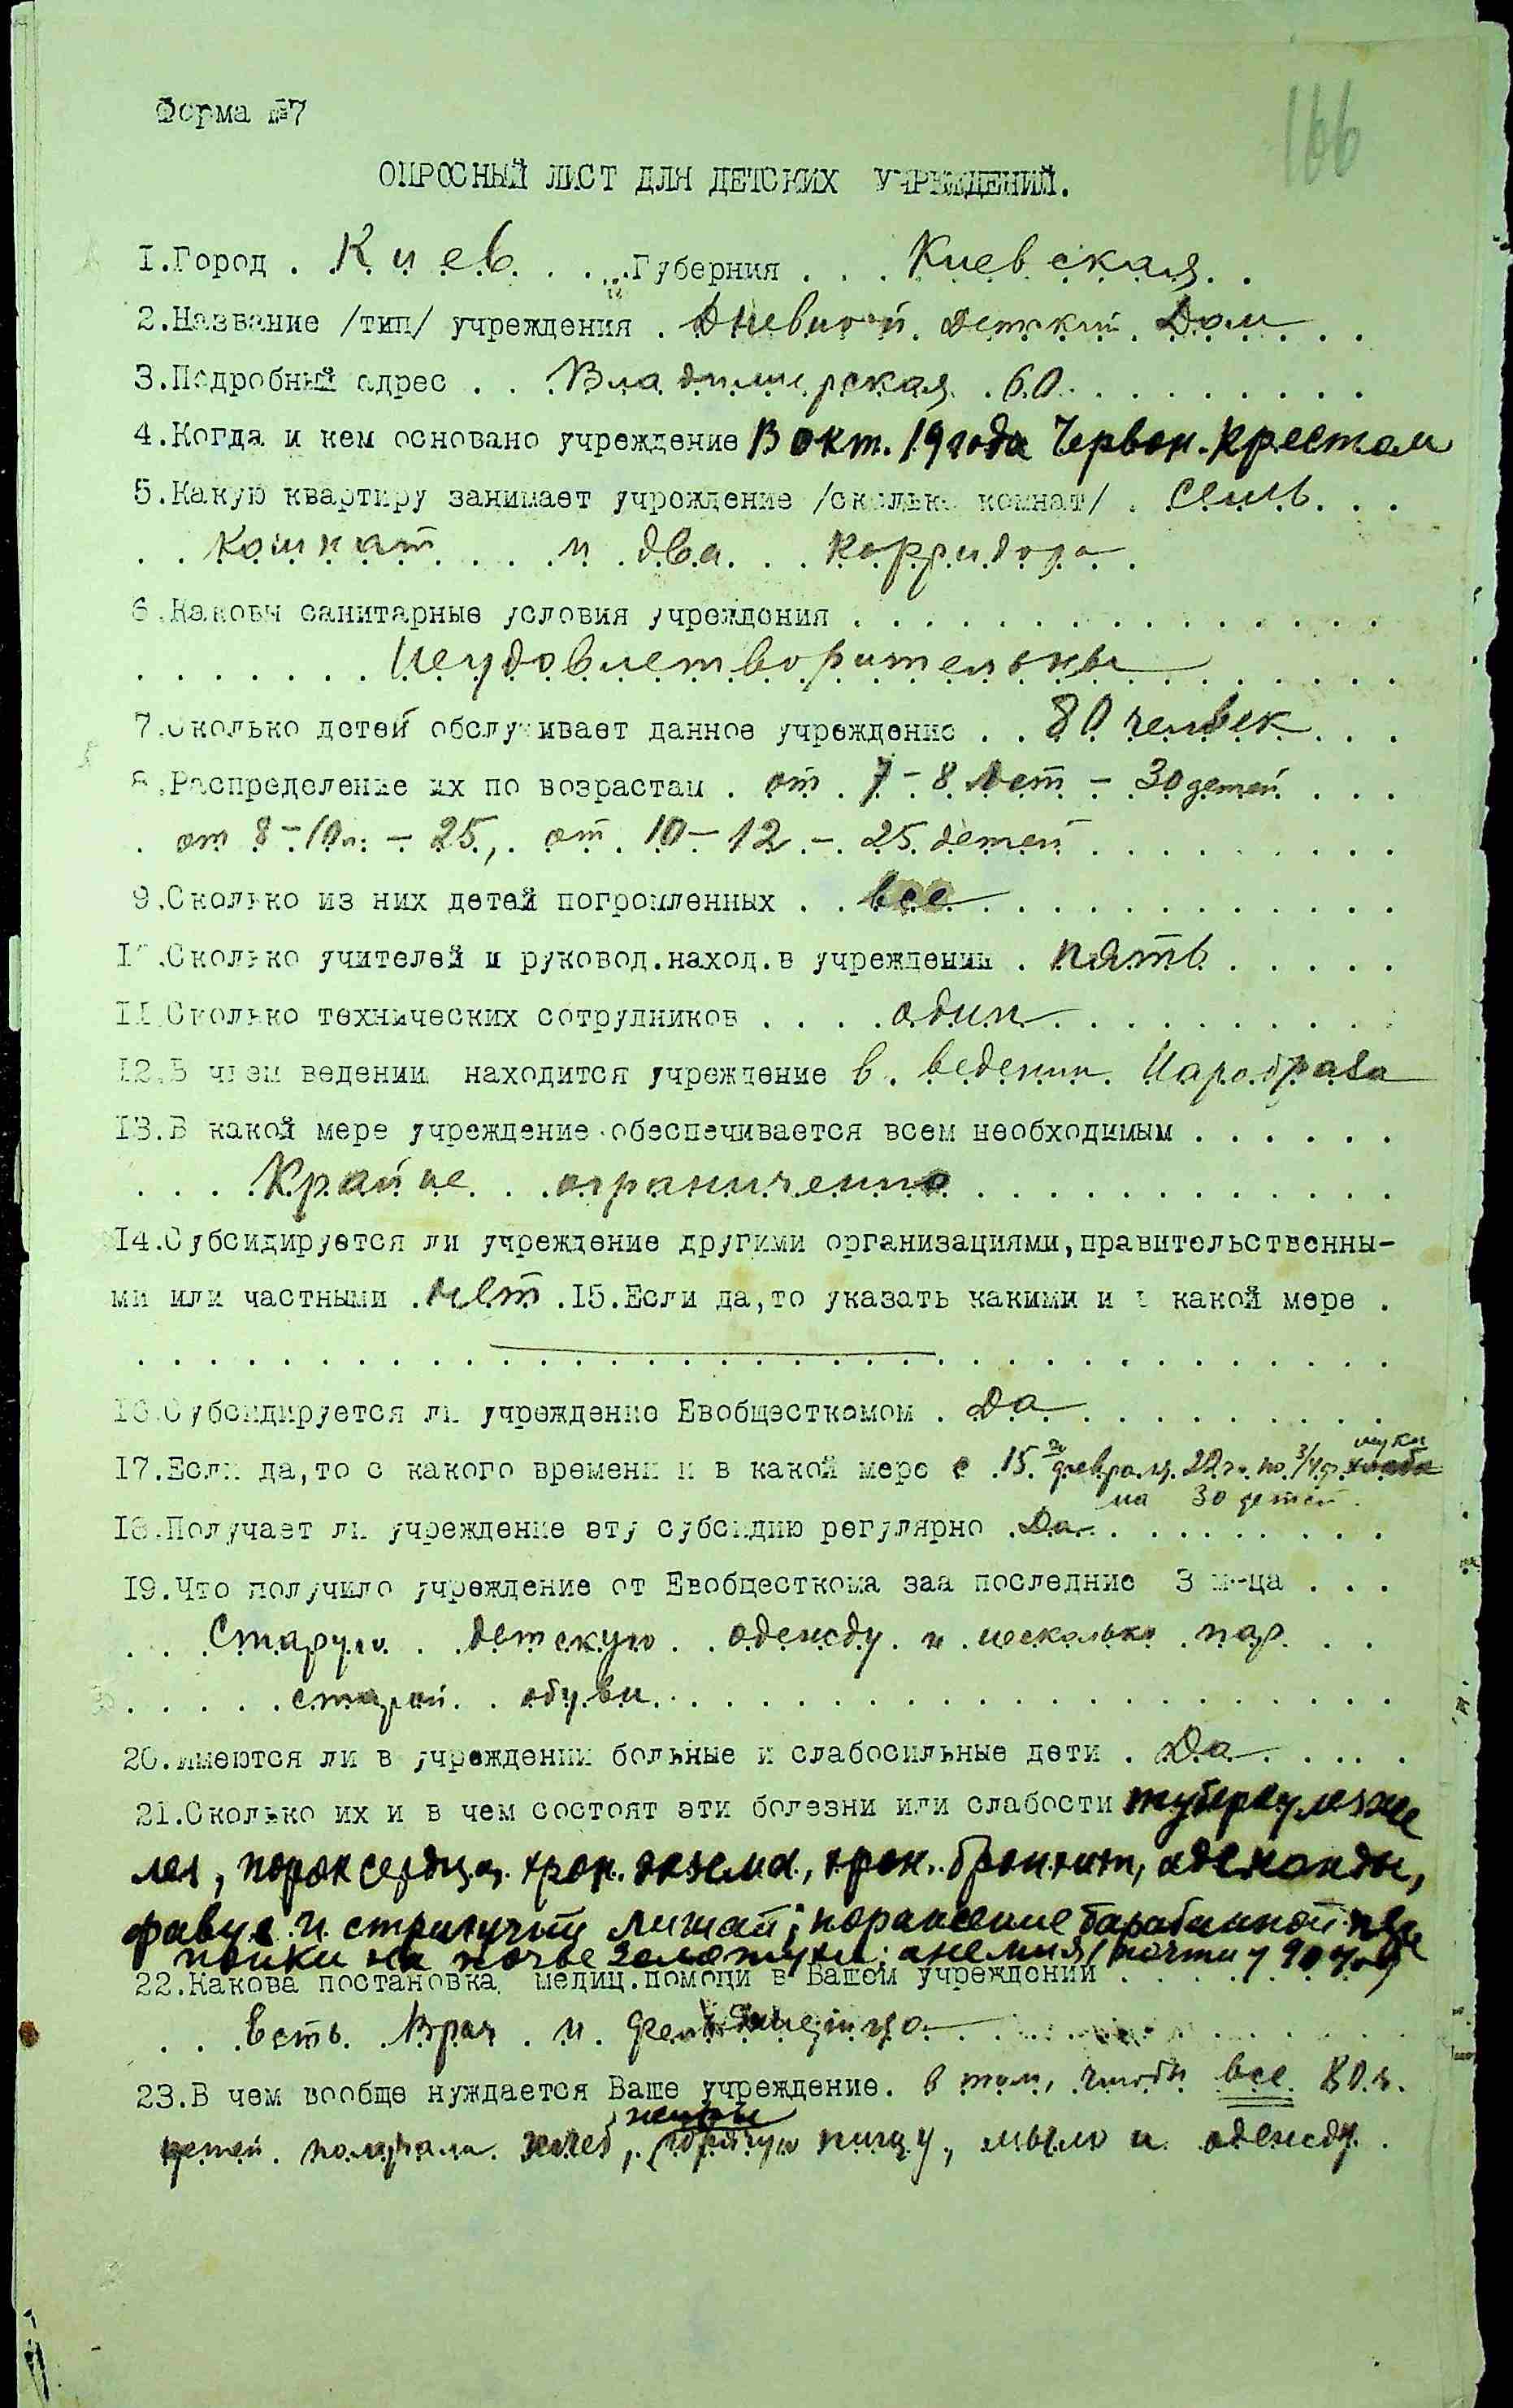 166
Форма №7
ОПРОСНЫЙ ЛИСТ ДЛЯ ДЕТСКИХ УЧРЕЖДЕНИЙ.
1.Город . Киев . . . . Губерния . . . Киевская . .
2.Название /тип/ учреждения . Дневной Детский Дом . . .
3.Подробный адрес . . Владимирская 60 . . . . . . . . .
4.Когда и кем основано учреждение В окт. 19 года Червон. Крестом
5.Какую квартиру занимает учреждение /сколько комнат/ . семь . . .
. . комнат . . . и два . . . корридора .
6.Каковы санитарные условия учреждения . . . . . . . . . . . . . . .
. . . . . . . Неудовлетворительны . . . . . .
7.Сколько детей обслуживает данное учреждение . . 80 человек . . .
8.Распределение их по возрастам . от 7-8 лет - 30 детей . . .
. от 8-10 л. - 25, от 10-12 - 25 детей . . . . . . . . .
9.Сколько из них детей погромленных . . все . . . . . . . . . . . .
10.Сколько учителей и руковод.наход.в учреждении . пять . . . . .
11.Сколько технических сотрудников . . . . один . . . . . . . . . .
12.В чьем ведении находится учреждение в ведении Наробраза
13.В какой мере учреждение обеспечивается всем необходимым . . . . . .
. . . . Крайне . . ограниченно . . . . . . . . . . . .
14.Субсидируется ли учреждение другими организациями,правительственны-
ми или частными . нет .15.Если да,то указать какими и в какой мере .
16.Субсидируется ли учреждение Евобщесткомом . Да . . . . . . . . .
17.Если да,то с какого времени и в какой мере с 15 го февраля 22 г. по 3/4 ф. хлеба муки
на 30 детей.
18.Получает ли учреждение эту субсидию регулярно . Да . . . . . . . .
19.Что получило учреждение от Евобщесткома заа последние 3 м-ца . . .
. . Старую . детскую . . одежду и несколько пар . . .
. . . . . старой . обуви . . . . . . . . . . . . . . . . . . . .
20.Имеются ли в учреждении больные и слабосильные дети . Да . . . .
21.Сколько их и в чем состоят эти болезни или слабости туберкулез же
лез, порок сердца, хрон. экзема, хрон. бронхит, аденоиды,
фавус и стригущий лишай; поражение барабанной пере
понки на почве золотухи; анемия (почти у 90%)
22.Какова постановка медиц.помощи в Вашем учреждении . . . . . . . .
. . . Есть Врач . и . фельдшерица
23.В чем вообще нуждается Ваше учреждение. в том, чтобы все 80 ч.
жиры
детей получали хлеб, горячую пищу, мыло и одежду .